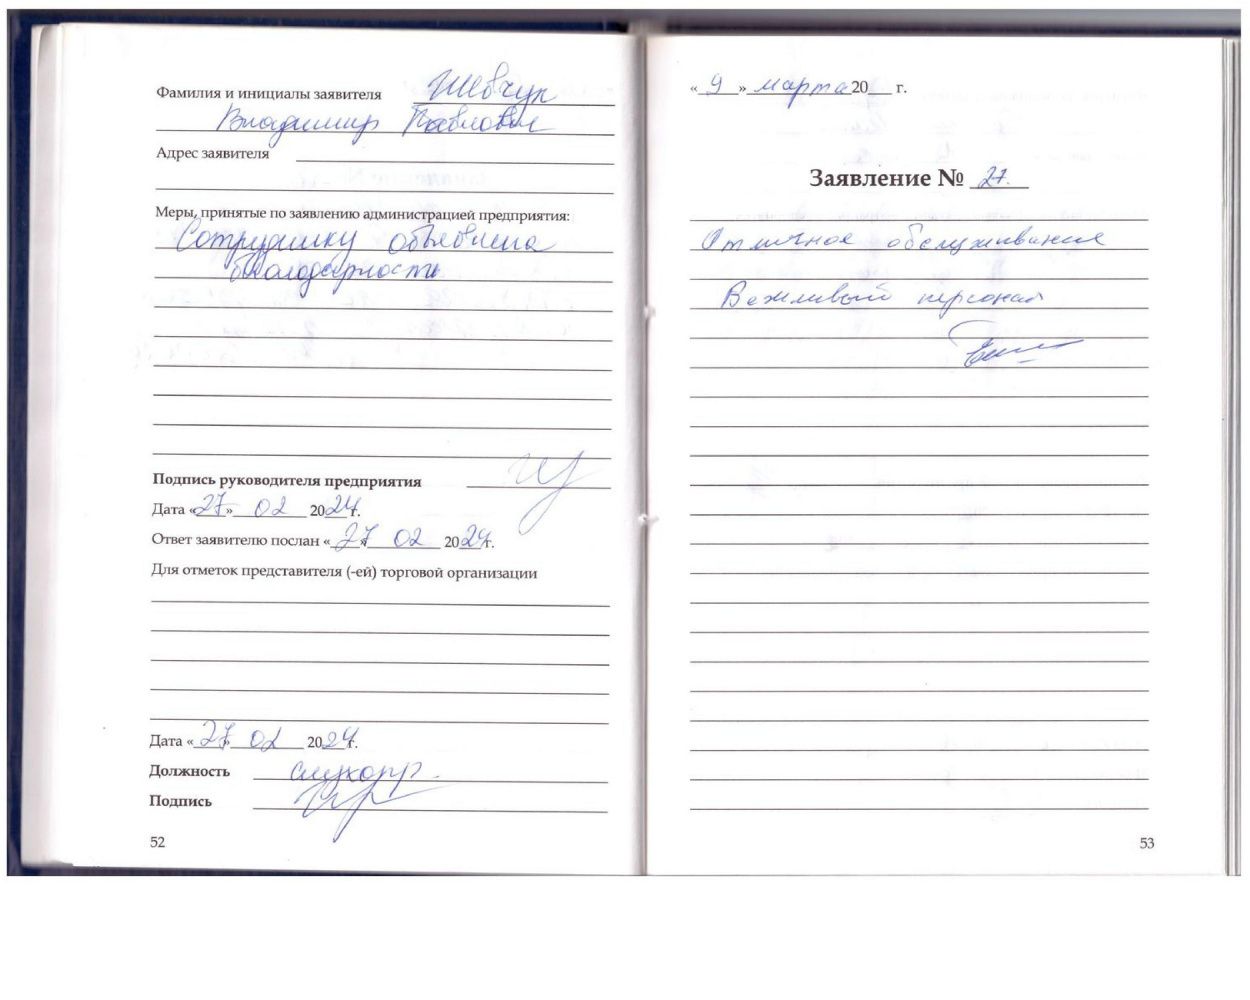 Фамилия и инициалы заявителя Шевчук
Владимир Павлович
Адрес заявителя
Меры, принятые по заявлению администрацией предприятия:
Сотруднику объявлена
благодарность
Подпись руководителя предприятия
Дата «27» 02 2024 г.
Ответ заявителю послан «27» 02 2024 г.
Для отметок представителя (-ей) торговой организации
Дата «27» 02 2024 г.
Должность
Подпись
52
«9» марта 20 г.
Заявление № 27.
Отличное обслуживание
Вежливый персонал
53